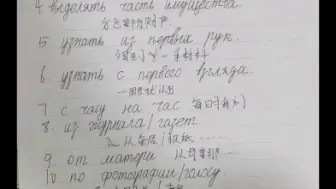 4 выделять часть имущества.
5. узнать из первых рук.
6. узнать с первого взгляда.
一眼就认出
7. с часу на час 每日每时
8. из журнала/газет
从杂志/报纸
9. от матери 从母亲那
10 по фотографии/голосу